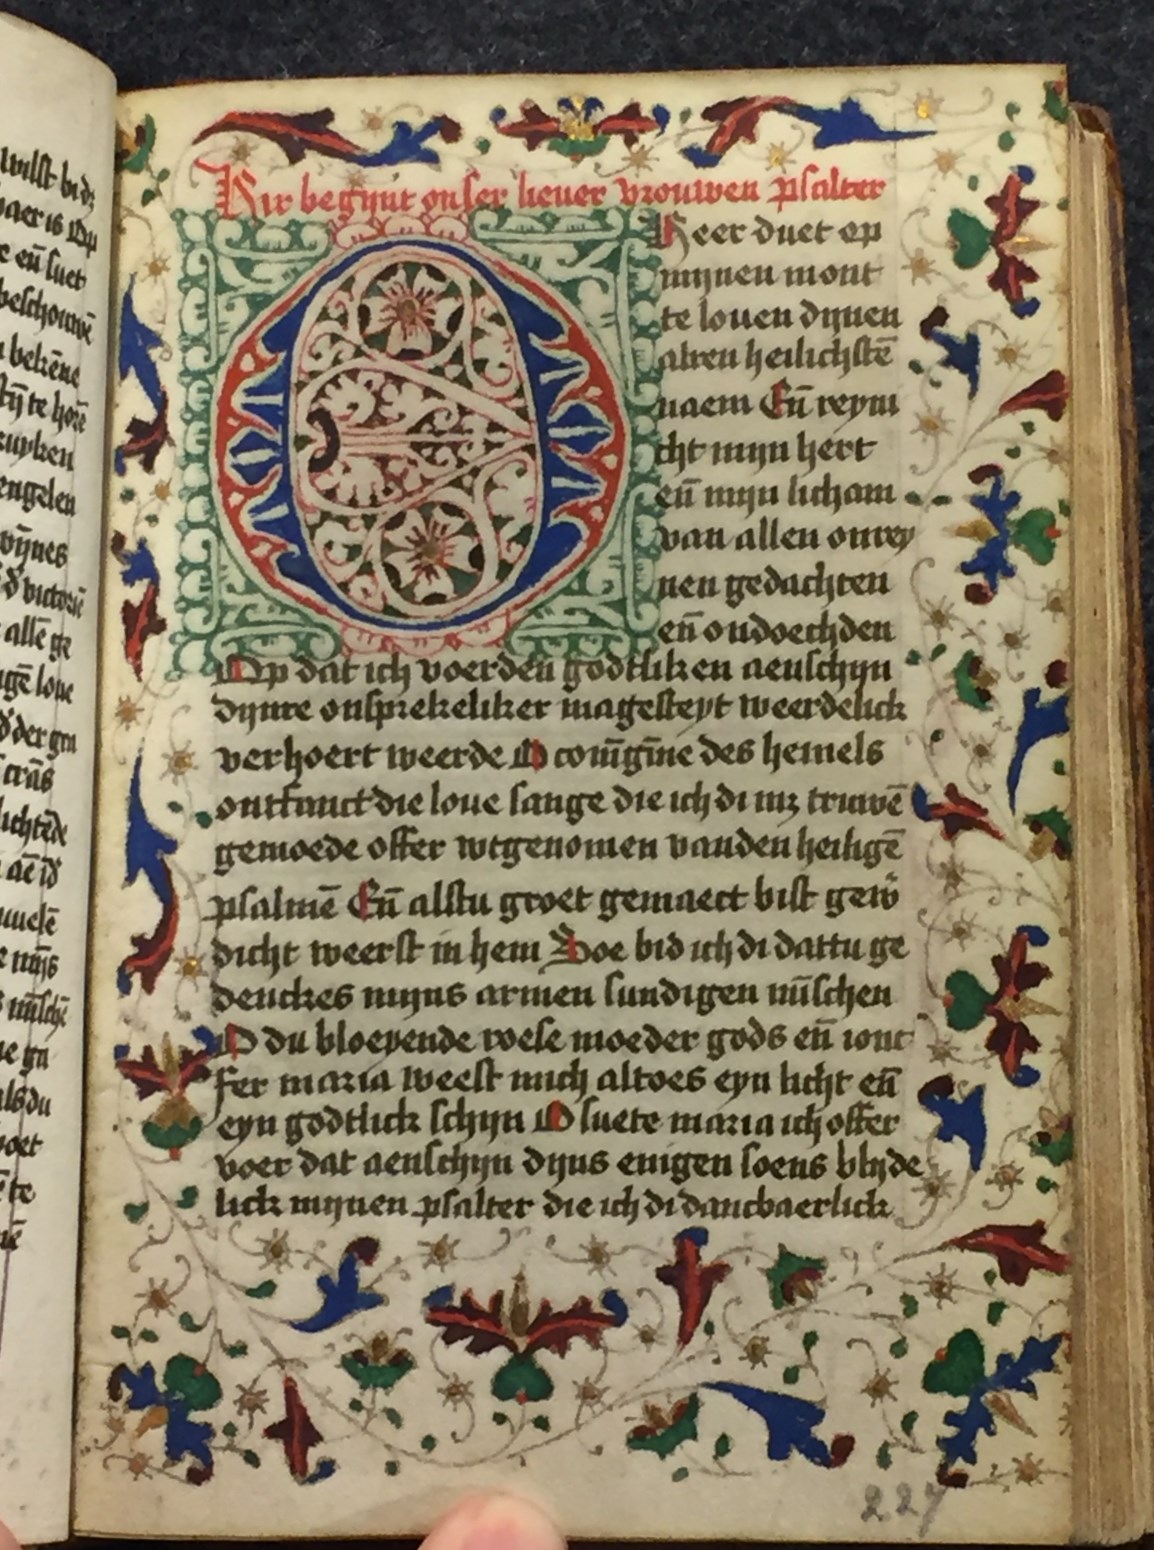 wilst bi dz
baer is Op
e eñ suet
beschouwē
bekēne
te horē
ruyken
engelen
wijnes
allē ge
Hir begynt onser lieuer vrouwen psalter
O Heer duet op
mynen mont
te louen dynen
alren heilichstē
naem Eñ reyni
cht myn hert
eñ myn licham
van allen onrey
nen gedachten
eñ ondoechden
Op dat ich voer den godtliken aenschyn
dynre onsprekeliker magesteyt weerdelick
verhoert weerde O conīgīne des hemels
ontfanct die loue sange die ich di mz truwē
gemoede offer wtgenomen vanden heiligē
psalmē Eñ alstu groet gemaect bist gew̄
dicht weerst in hem Soe bid ich di dattu ge
denckes myns armen sundigen mīschen
O du bloeyende rose moeder gods eñ ionc
fer maria weest mich altoes eyn licht eñ
eyn godtlick schyn O suete maria ich offer
voer dat aenschyn dyns enigen soens blyde
lick mynen psalter die ich di dancbaerlick
227